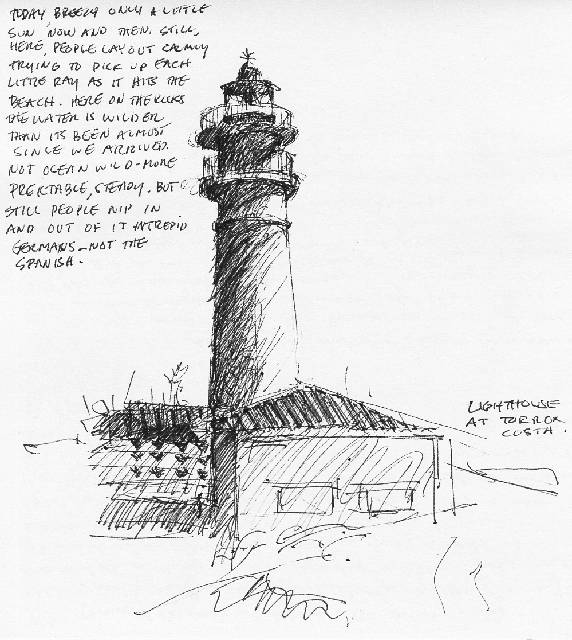 TODAY BREEZY ONLY A LITTLE
SUN NOW AND THEN. STILL,
HERE, PEOPLE LAY OUT CALMLY
TRYING TO PICK UP EACH
LITTLE RAY AS IT HITS THE
BEACH. HERE ON THE ROCKS
THE WATER IS WILDER
THAN ITS BEEN ALMOST
SINCE WE ARRIVED.
NOT OCEAN WILD - MORE
PREICTABLE, STEADY. BUT
STILL PEOPLE NIP IN
AND OUT OF IT INTREPID
GERMANS - NOT THE
SPANISH.
LIGHTHOUSE
AT TORROX
COSTA.